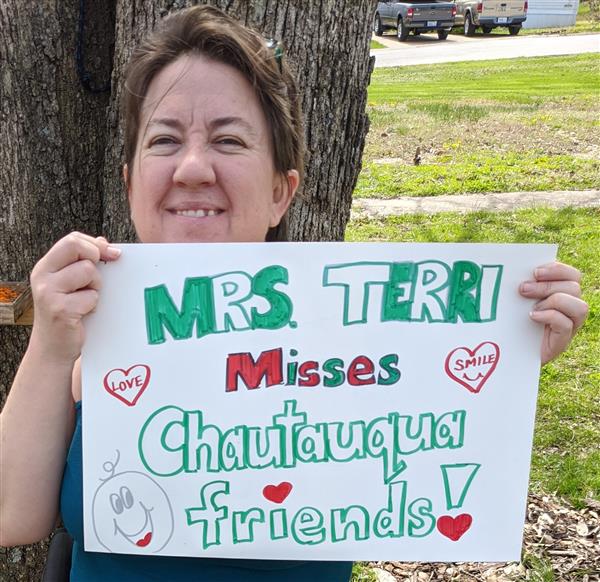 MRS. TERRI
Misses
LOVE
SMILE
Chautauqua
friends!